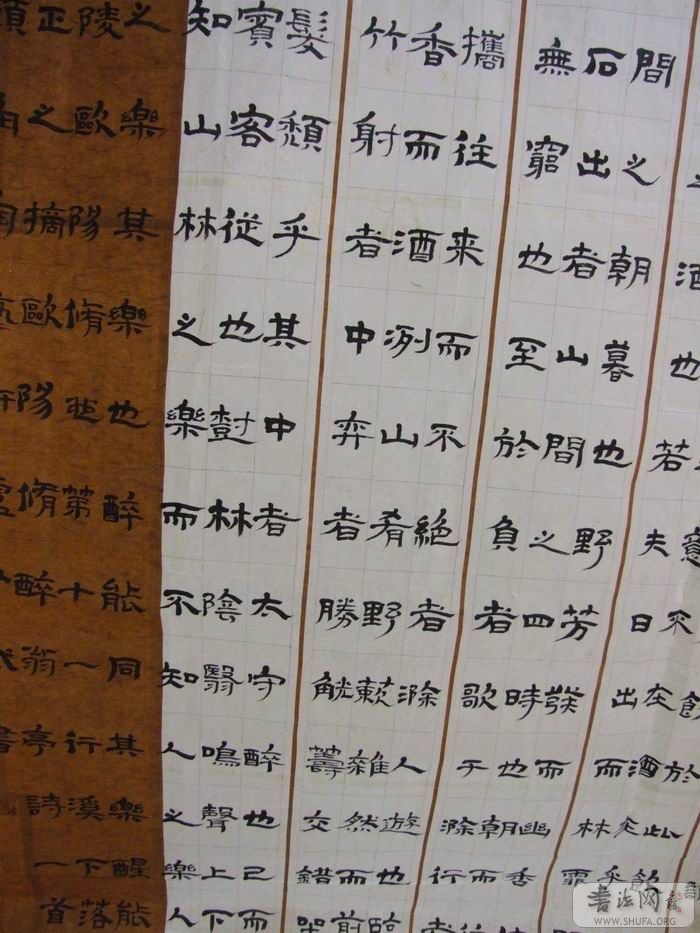 飲於此飲
意不在酒在乎
酒也若夫日出而林霏
間之朝暮也野芳發而幽香
石出者山間之四時也朝而
無窮也至於負者歌于滁行者
攜往来而不絕者滁人遊也臨
香而酒洌山肴野蔌雜然而前
竹射者中弈者勝觥籌交錯
髮頹乎其中者太守醉也已而
賓客從也樹林陰翳鳴聲上下
知山林之樂而不知人之樂人
之樂其樂也醉能同其樂醒能
陵歐陽脩也第十一行溪下落
正之摘歐陽脩醉翁亭詩一首
書法网
WWW.SHUFA.ORG